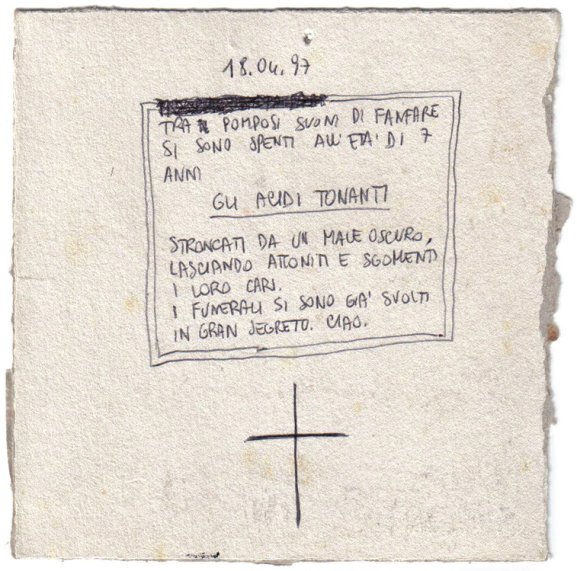 18.04.97
TRA POMPOSI SUONI DI FANFARE
SI SONO SPENTI ALL'ETA' DI 7
ANNI
GLI ACIDI TONANTI
STRONCATI DA UN MALE OSCURO,
LASCIANDO ATTONITI E SGOMENTI
I LORO CARI.
I FUNERALI SI SONO GIA' SVOLTI
IN GRAN SEGRETO. CIAO.